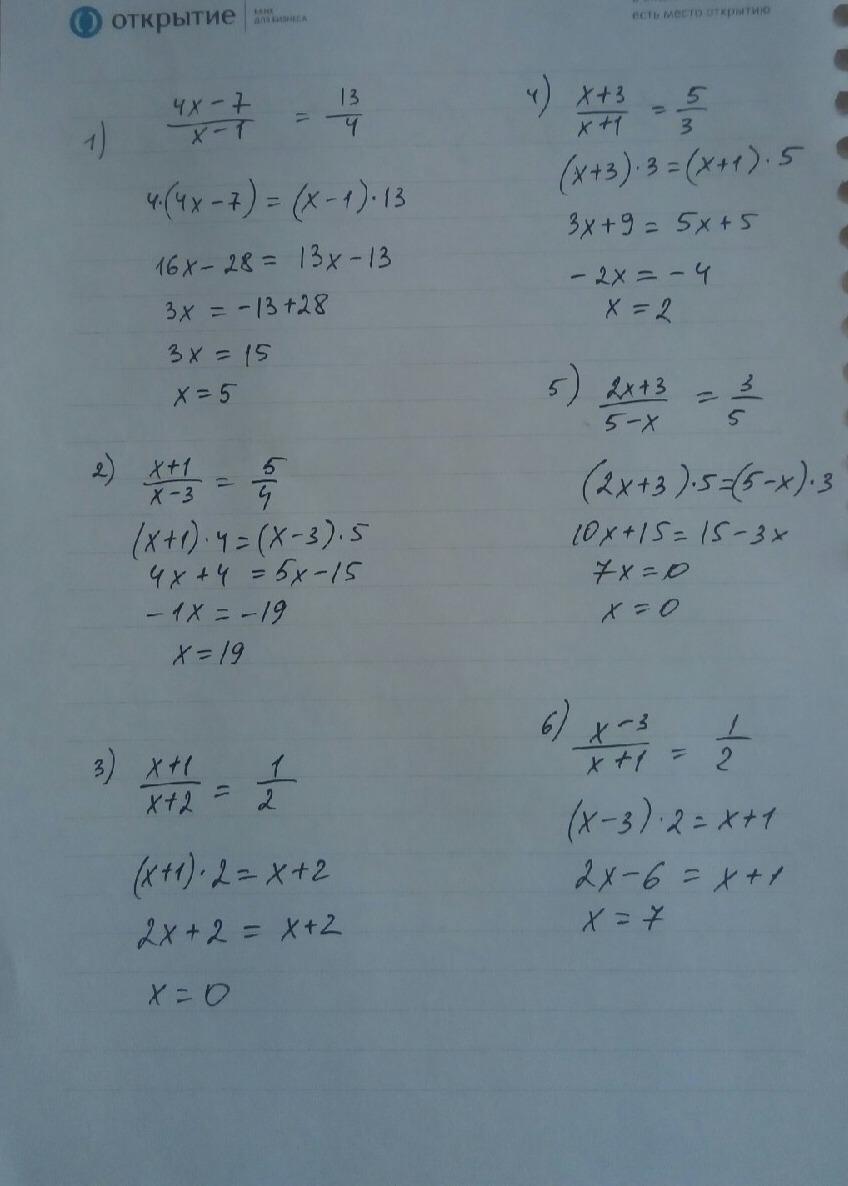 открытие
БАНК
ДЛЯ БИЗНЕСА
есть место открытию
1) (4x-7)/(x-1) = 13/4
4·(4x-7) = (x-1)·13
16x-28 = 13x-13
3x = -13+28
3x = 15
x = 5
2) (x+1)/(x-3) = 5/4
(x+1)·4 = (x-3)·5
4x+4 = 5x-15
-1x = -19
x = 19
3) (x+1)/(x+2) = 1/2
(x+1)·2 = x+2
2x+2 = x+2
x = 0
4) (x+3)/(x+1) = 5/3
(x+3)·3 = (x+1)·5
3x+9 = 5x+5
-2x = -4
x = 2
5) (2x+3)/(5-x) = 3/5
(2x+3)·5 = (5-x)·3
10x+15 = 15-3x
7x = 0
x = 0
6) (x-3)/(x+1) = 1/2
(x-3)·2 = x+1
2x-6 = x+1
x = 7